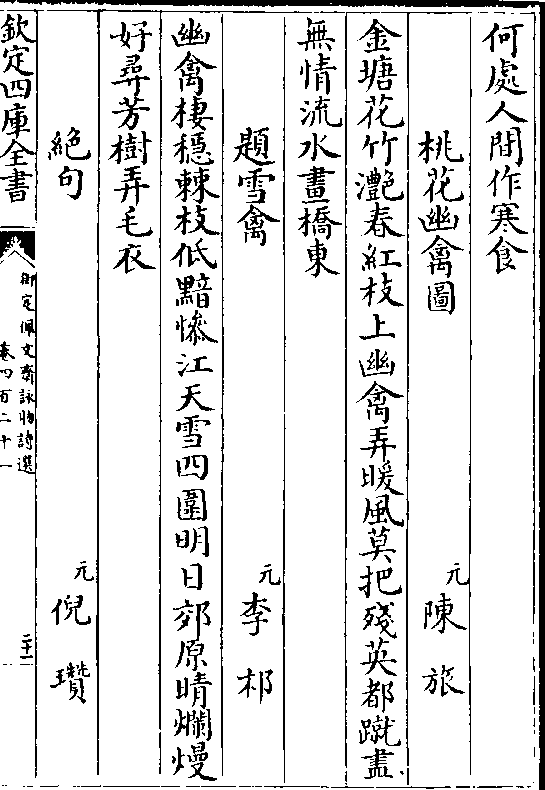 何處人間作寒食
桃花幽禽圖 元 陳旅
金塘花竹灩春紅枝上幽禽弄暖風莫把殘英都蹴盡
無情流水畫橋東
題雪禽 元 李祁
幽禽棲穩棘枝低黯慘江天雪四圍明日郊原晴爛熳
好尋芳樹弄毛衣
絶句 元 倪瓚
欽定四庫全書
御定佩文齋詠物詩選
卷四百二十一
二十二